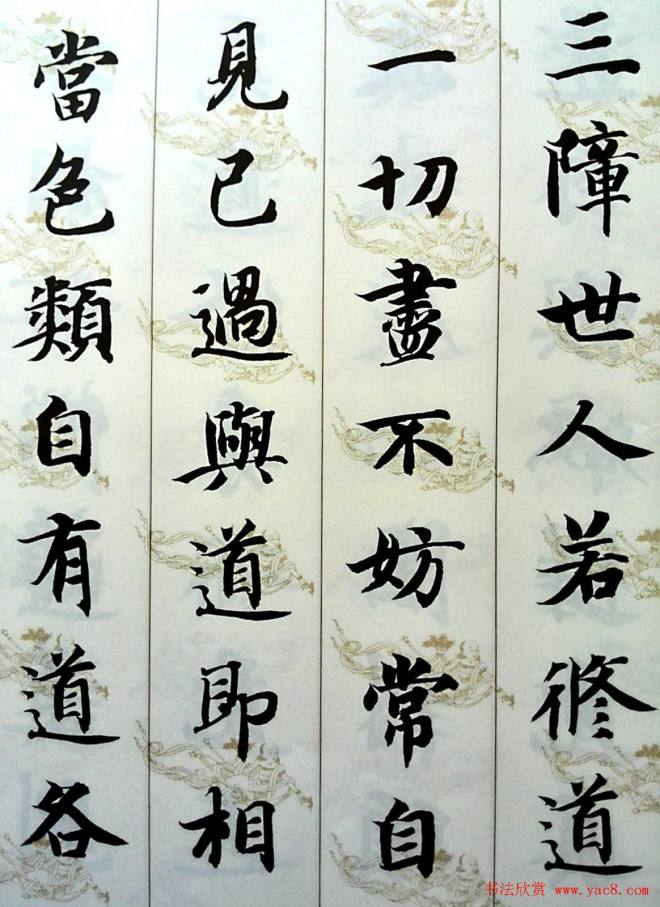 三障世人若修道
一切盡不妨常自
見己過與道即相
當色類自有道各
书法欣赏 www.yac8.com